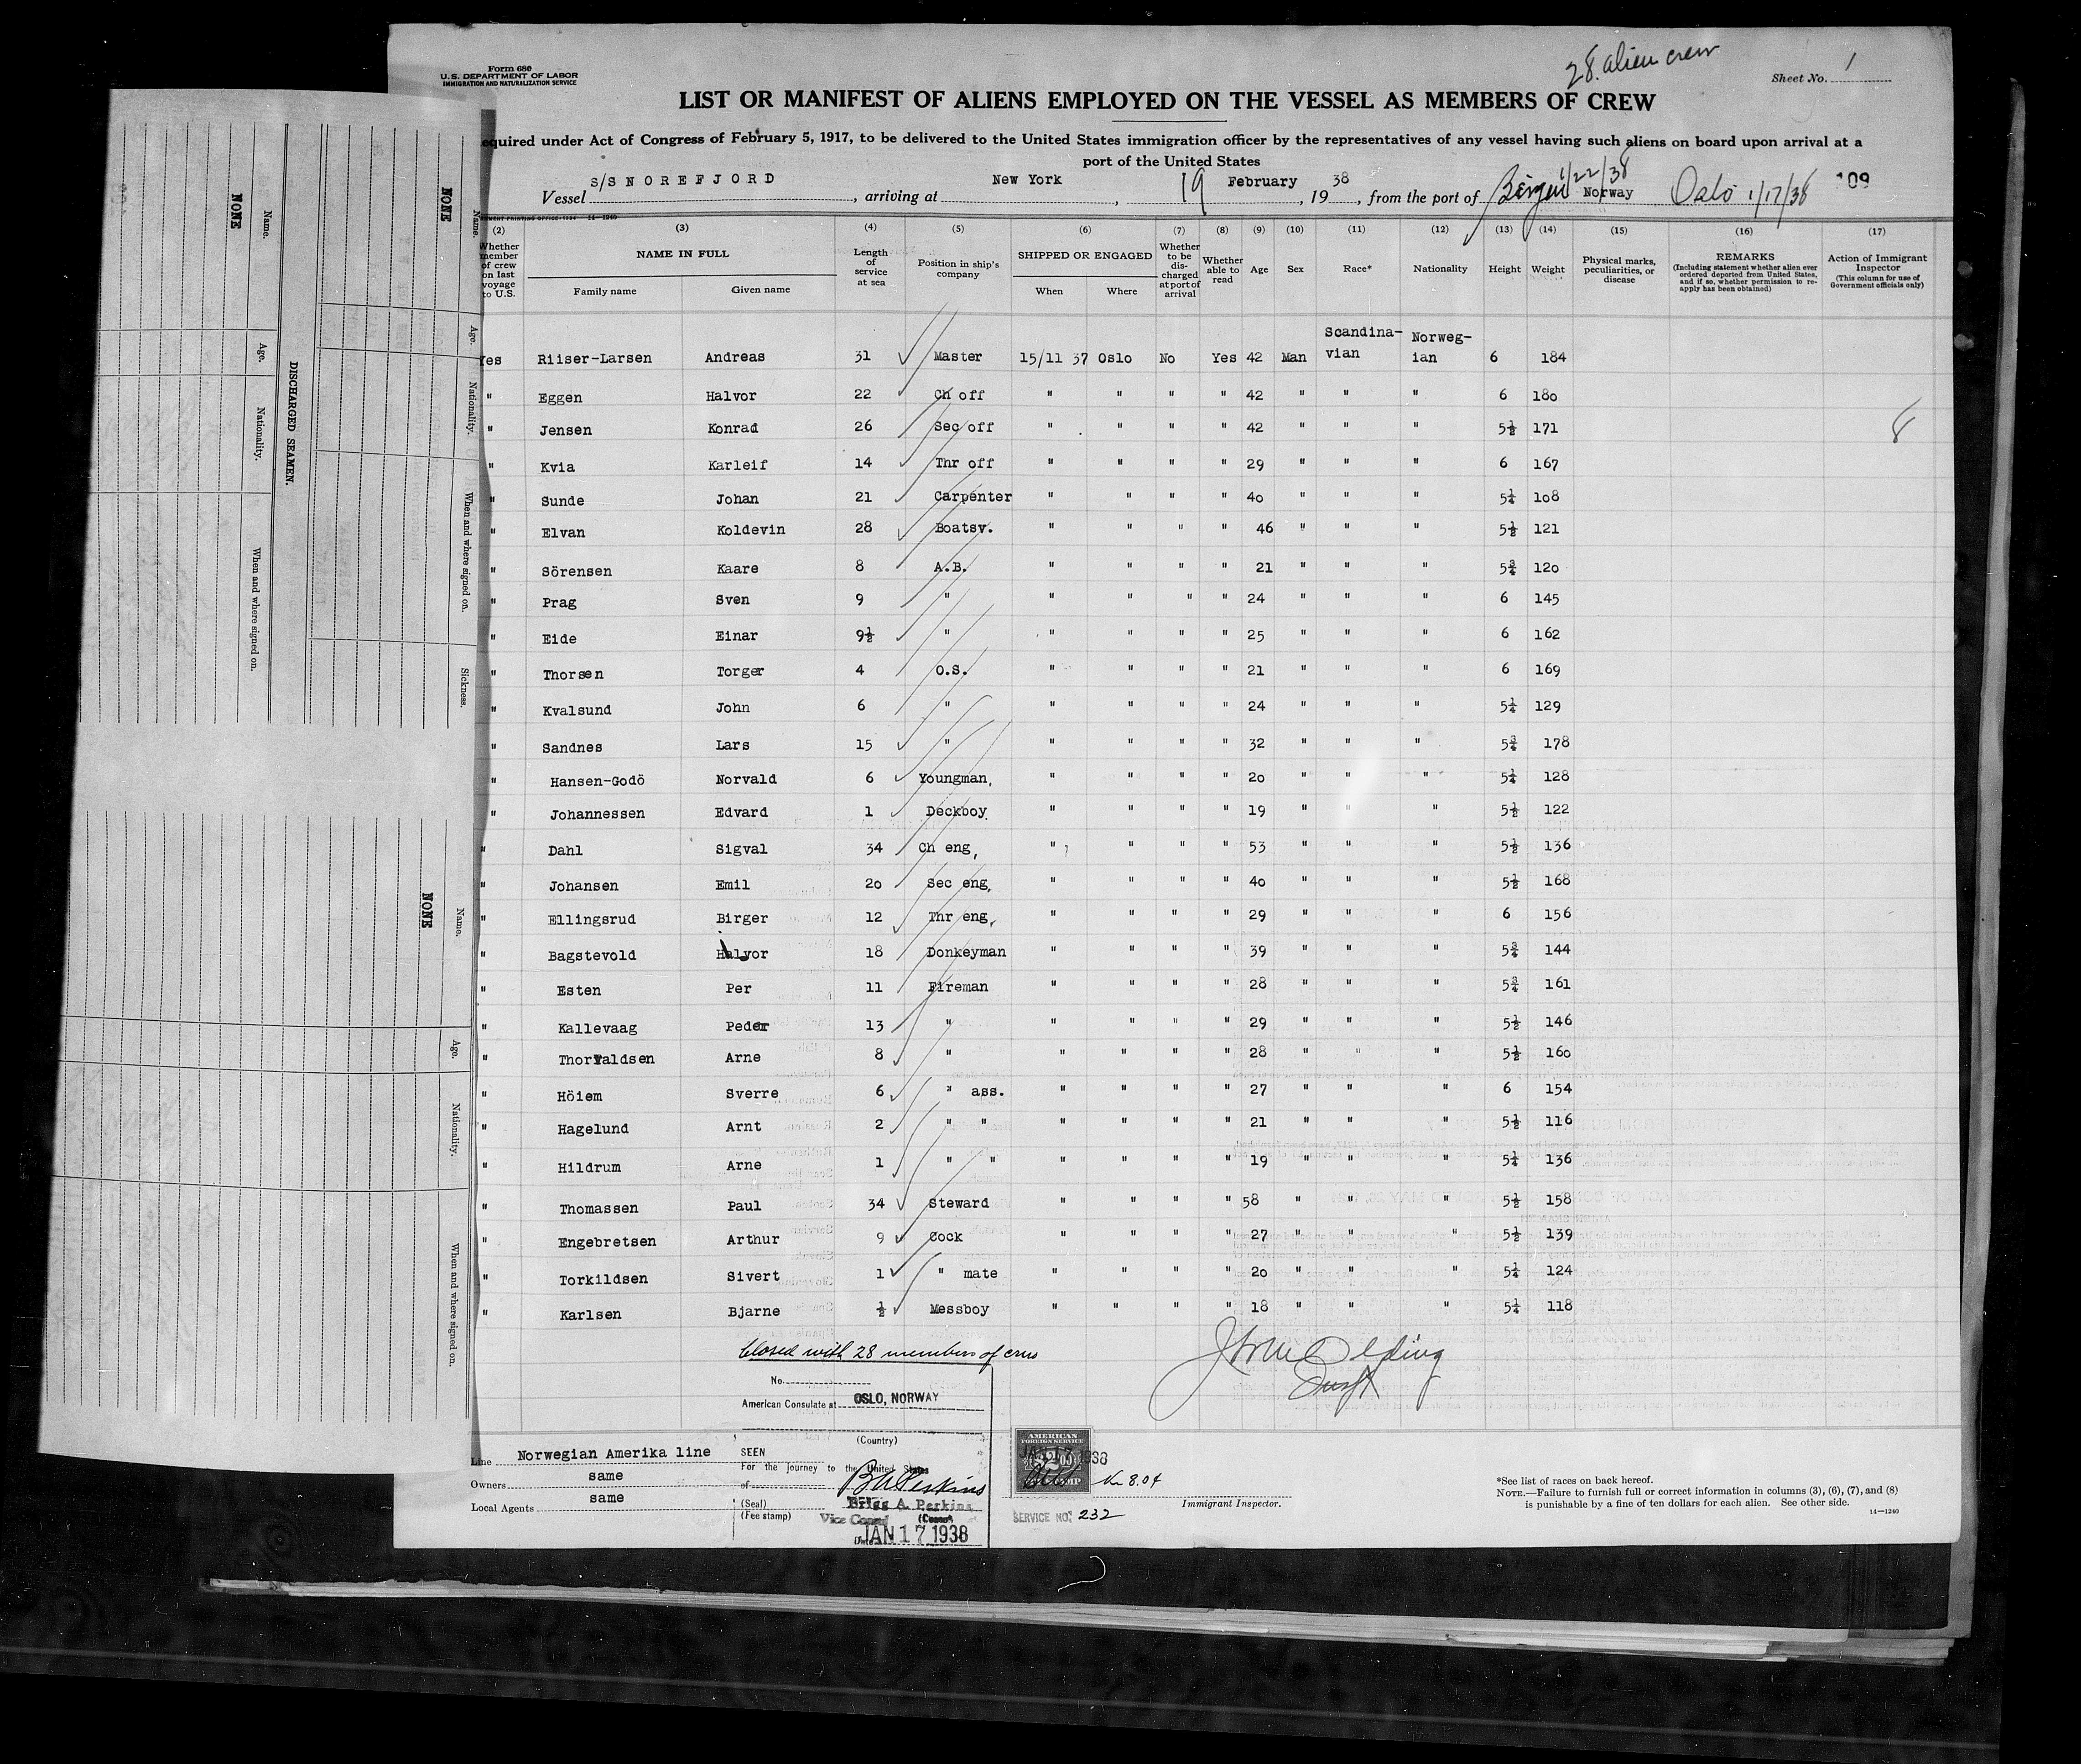 Form 680
U.S. DEPARTMENT OF LABOR
IMMIGRATION AND NATURALIZATION SERVICE
28. alien crew
Sheet No. 1
LIST OR MANIFEST OF ALIENS EMPLOYED ON THE VESSEL AS MEMBERS OF CREW
equired under Act of Congress of February 5, 1917, to be delivered to the United States immigration officer by the representatives of any vessel having such aliens on board upon arrival at a
port of the United States
Vessel S/S NOREFJORD, arriving at New York, 19 February, 1938, from the port of Bergen 1/22/38 Norway Oslo 1/17/38 109
(2) (3) (4) (5) (6) (7) (8) (9) (10) (11) (12) (13) (14) (15) (16) (17)
Whether member of crew on last voyage to U.S.
NAME IN FULL
Family name Given name
Length of service at sea
Position in ship's company
SHIPPED OR ENGAGED
When Where
Whether to be discharged at port of arrival
Whether able to read
Age Sex Race* Nationality Height Weight
Physical marks, peculiarities, or disease
REMARKS
(Including statement whether alien ever ordered deported from United States, and if so, whether permission to reapply has been obtained)
Action of Immigrant Inspector
(This column for use of Government officials only)
Yes Riiser-Larsen Andreas 31 Master 15/11 37 Oslo No Yes 42 Man Scandina-vian Norweg-ian 6 184
" Eggen Halvor 22 Ch off " " " " 42 " " " 6 180
" Jensen Konrad 26 Sec off " " " " 42 " " " 5½ 171
8
" Kvia Karleif 14 Thr off " " " " 29 " " " 6 167
" Sunde Johan 21 Carpenter " " " " 40 " " " 5¼ 108
" Elvan Koldevin 28 Boatsv. " " " " 46 " " " 5½ 121
" Sörensen Kaare 8 A.B. " " " " 21 " " " 5¾ 120
" Prag Sven 9 " " " " " 24 " " " 6 145
" Eide Einar 9½ " " " " " 25 " " " 6 162
" Thorsen Torger 4 O.S. " " " " 21 " " " 6 169
" Kvalsund John 6 " " " " " 24 " " " 5¼ 129
" Sandnes Lars 15 " " " " " 32 " " " 5¾ 178
" Hansen-Godö Norvald 6 Youngman, " " " " 20 " " " 5¼ 128
" Johannessen Edvard 1 Deckboy " " " " 19 " " " 5½ 122
" Dahl Sigval 34 Ch eng, " " " " 53 " " " 5½ 136
" Johansen Emil 20 Sec eng, " " " " 40 " " " 5½ 168
" Ellingsrud Birger 12 Thr eng, " " " " 29 " " " 6 156
" Bagstevold Halvor 18 Donkeyman " " " " 39 " " " 5¾ 144
" Esten Per 11 Fireman " " " " 28 " " " 5¾ 161
" Kallevaag Peder 13 " " " " " 29 " " " 5½ 146
" Thorvaldsen Arne 8 " " " " " 28 " " " 5½ 160
" Höiem Sverre 6 " ass. " " " " 27 " " " 6 154
" Hagelund Arnt 2 " " " " " " 21 " " " 5½ 116
" Hildrum Arne 1 " " " " " " 19 " " " 5¼ 136
" Thomassen Paul 34 Steward " " " " 58 " " " 5½ 158
" Engebretsen Arthur 9 Cock " " " " 27 " " " 5½ 139
" Torkildsen Sivert 1 " mate " " " " 20 " " " 5¼ 124
" Karlsen Bjarne ½ Messboy " " " " 18 " " " 5¼ 118
Closed with 28 members of crew
No.
American Consulate at OSLO, NORWAY
(Country)
SEEN
For the journey to the United States
of
(Seal)
(Fee stamp)
B A Perkins
Brigg A. Perkins
Vice Consul (Consul)
Date JAN 17 1938
Line Norwegian Amerika line
Owners same
Local Agents same
AMERICAN
FOREIGN SERVICE
JAN 17 1938
No 804
SERVICE NO. 232
Immigrant Inspector.
*See list of races on back hereof.
NOTE.—Failure to furnish full or correct information in columns (3), (6), (7), and (8)
is punishable by a fine of ten dollars for each alien. See other side.
14—1240
DISCHARGED SEAMEN.
Name. Age. Nationality. When and where signed on.
NONE
Name. Age. Nationality. When and where signed on. Sickness.
NONE
Name. Age. Nationality. When and where signed on.
NONE